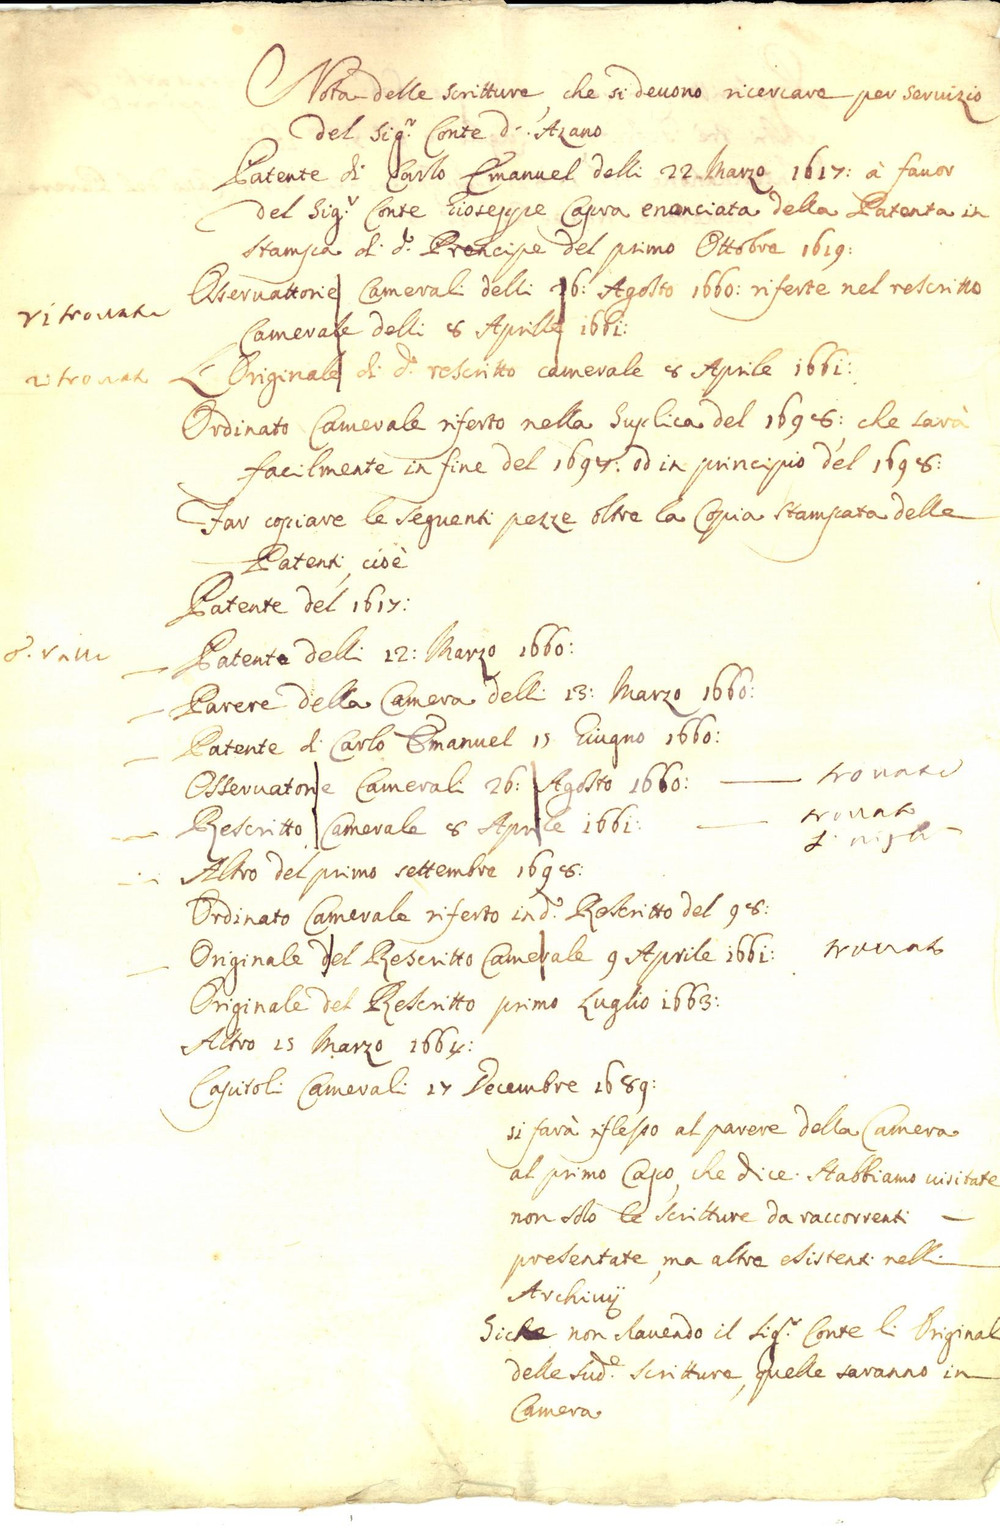 Nota delle scritture, che si deuono ricercare per seruizio
del Sig.r Conte d'Azano
Patente di Carlo Emanuel delli 22 Marzo 1617: à fauor
del Sig.r Conte Gioseppe Capra enonciata della Patenta in
stampa di d.o Prencipe del primo Ottobre 1619:
Oseruattorie Camerali delli 26: Agosto 1660: riferte nel rescritto
ritrouate
Camerale delli 8 Aprile 1661:
ritrouat
L'Originale di d.o rescritto camerale 8 Aprile 1661:
Ordinato Camerale riferto nella Suplica del 1698: che sarà
facilmente in fine del 1697: od in principio del 1698:
Far copiare le seguenti pezze oltre la Copia stampata delle
Patenti, cioè
Patente del 1617:
Patente delli 12: Marzo 1660:
Parere della Camera delli 13: Marzo 1660:
Patente di Carlo Emanuel 15 Giugno 1660:
Osseruatorie Camerali 26: Agosto 1660: trouate
Rescritto Camerale 8 Aprile 1661: trouato
Altro del primo settembre 1698:
Ordinato Camerale riferto in d.o Rescritto del 98:
Originale del Rescritto Camerale 9 Aprile 1661: trouato
Originale del Rescritto primo Luglio 1663:
Altro 15 Marzo 1664:
Capitoli Camerali 17 Decembre 1689:
si farà riflesso al parere della Camera
al primo Capo, che dice. Habbiamo uisitate
non solo le scritture da raccorrenti
presentate, ma altre esistenti nelli
Archiuij
Siche non hauendo il Sig.r Conte li Original
delle sud.e scritture, quelle saranno in
Camera